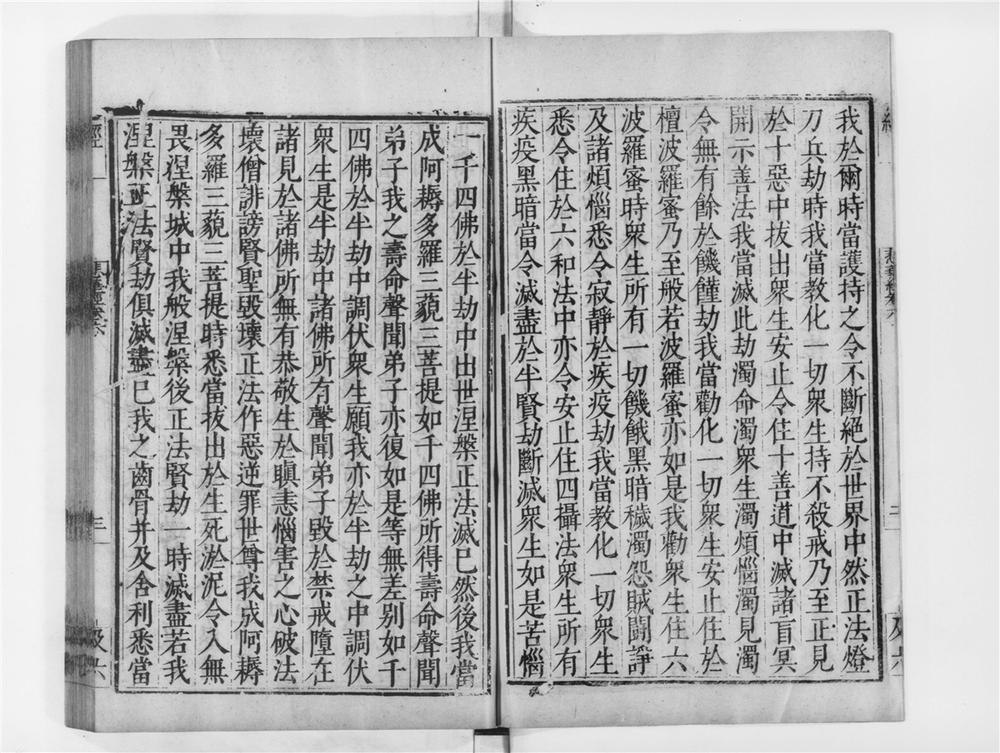 我於爾時當護持之令不斷絕於世界中然正法燈
刀兵劫時我當教化一切衆生持不殺戒乃至正見
於十惡中拔出衆生安止令住十善道中滅諸盲冥
開示善法我當滅此劫濁命濁衆生濁煩惱濁見濁
令無有餘於饑饉劫我當勸化一切衆生安止住於
檀波羅蜜乃至般若波羅蜜亦如是我勸衆生住六
波羅蜜時衆生所有一切饑餓黑暗穢濁怨賊鬪諍
及諸煩惱悉令寂靜於疾疫劫我當教化一切衆生
悉令住於六和法中亦令安止住四攝法衆生所有
疾疫黑暗當令滅盡於半賢劫斷滅衆生如是苦惱
一千四佛於半劫中出世涅槃正法滅已然後我當
成阿耨多羅三藐三菩提如千四佛所得壽命聲聞
弟子我之壽命聲聞弟子亦復如是等無差別如千
四佛於半劫中調伏衆生願我亦於半劫之中調伏
衆生是半劫中諸佛所有聲聞弟子毀於禁戒墮在
諸見於諸佛所無有恭敬生於瞋恚惱害之心破法
壞僧誹謗賢聖毀壞正法作惡逆罪世尊我成阿耨
多羅三藐三菩提時悉當拔出於生死淤泥令入無
畏涅槃城中我般涅槃後正法賢劫一時滅盡若我
涅槃正法賢劫俱滅盡已我之齒骨并及舍利悉當
經
三